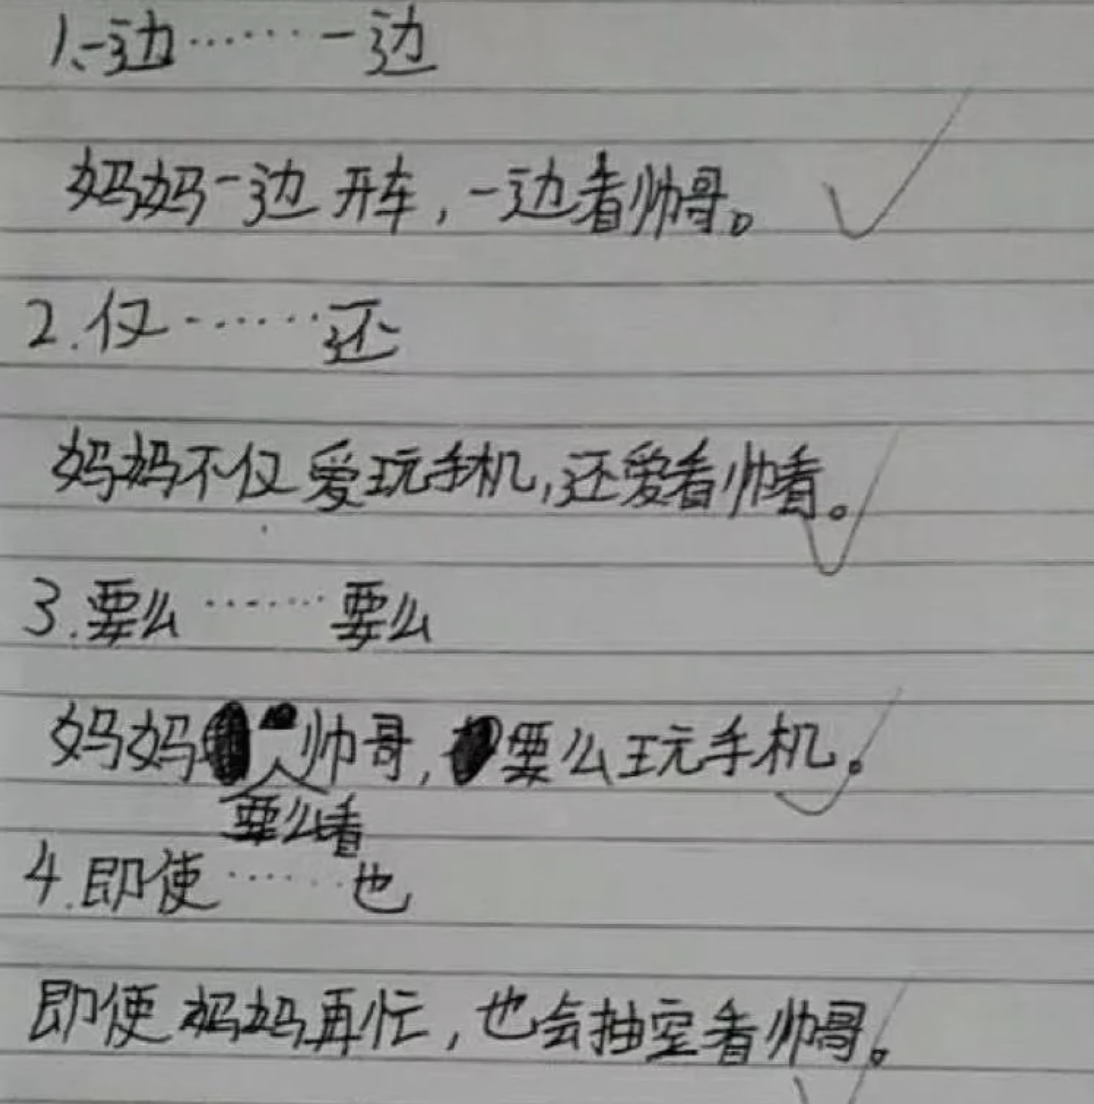 1、一边……一边
妈妈一边开车，一边看帅哥。
2.仅……还
妈妈不仅爱玩手机，还爱看帅看。
3.要么……要么
妈妈要么看帅哥，要么玩手机。
4.即使……也
即使妈妈再忙，也会抽空看帅哥。